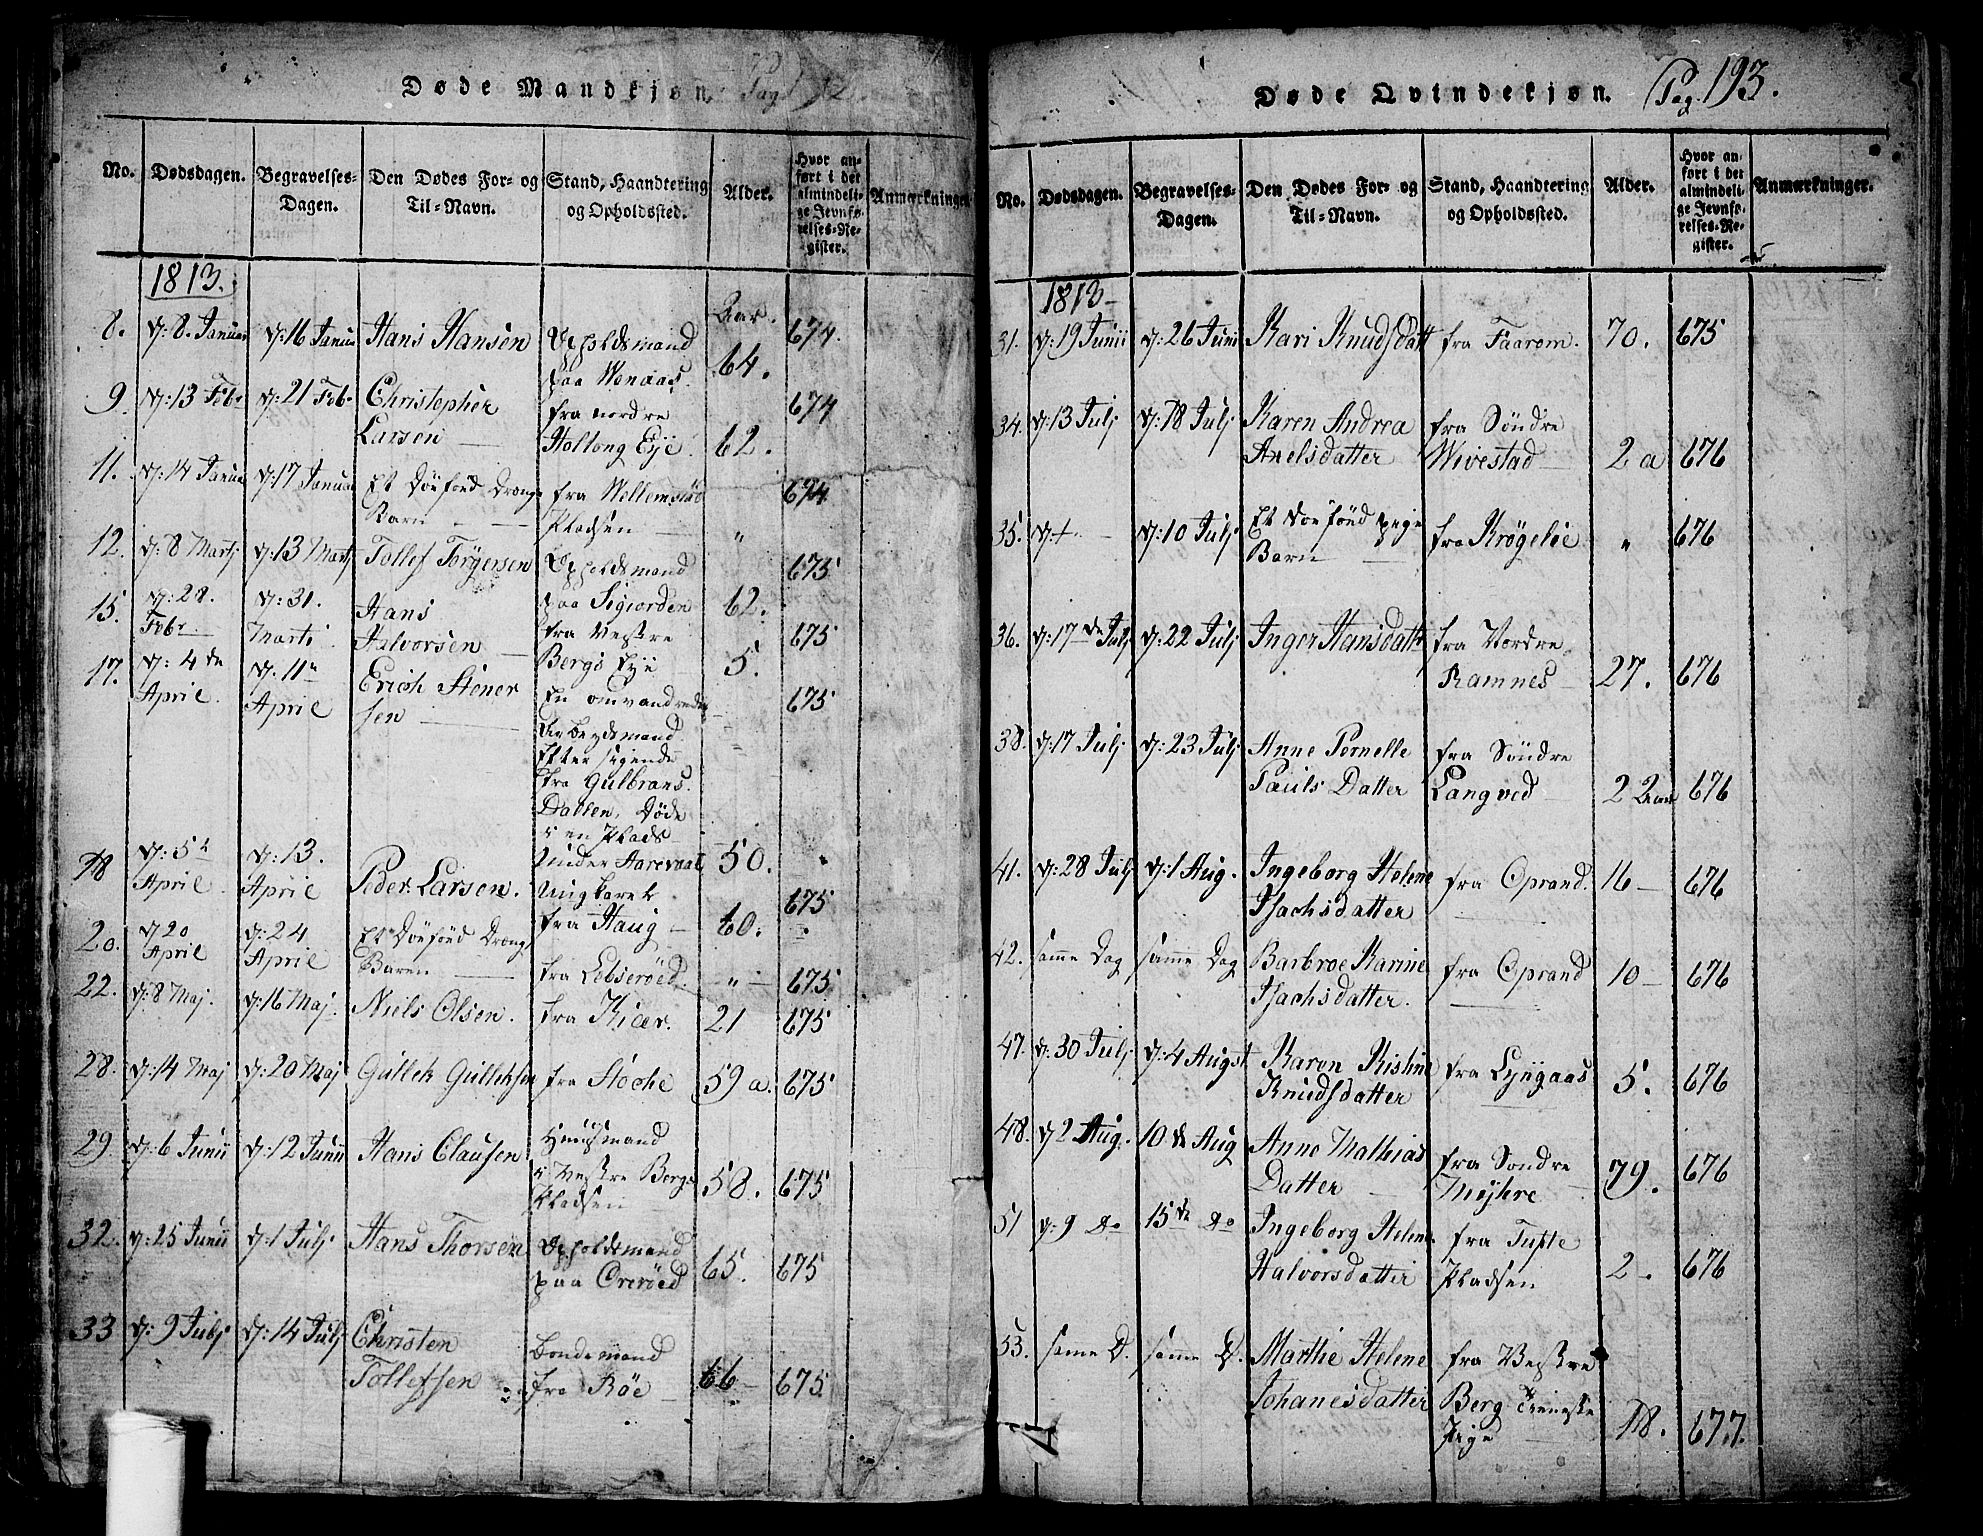 Døde Mandkjøn.
No. Dødsdagen. Begravelses-Dagen. Den Dødes For- og Til-Navn. Stand, Haandtering og Opholdssted. Alder. Hvor anført i det almindelige Jevnførelses-Register. Anmærkninger.
1813.
Aar.
8. d: 8. Januar d: 16 Januar Hans Hansen Opholdsmand paa Wenaas. 64. 674.
9. d: 13 Febr d: 21 Febr Christopher Larsen fra nordre Holtong Eje. 62. 674
11. d: 14 Januar d: 17 Januar Et Dødfød Drenge Barn fra Wellemsrød Pladsen " 674
12. d: 8 Martj d: 13 Martj Tollef Torgersen Opholdsmand paa Sigiorden 62. 675
15. d: 28. Febr d: 31. Marti Hans Halvorsen fra Vestre Bergs Eje 5. 675
17. d: 4de April. d: 11te April Erich Stenersen En omvandrende Arbeydsmand Efter sigende fra Gulbrans Dallen, Døde i en Plads under Aarevaal 50. 675
18 d: 5te April d: 13. April Peder Larsen. Ungkarl fra Haug 60. 675
20. d 20 April d: 24 April Et Dødfød Drenge Baren fra Lebserøed. " 675
22. d: 8 Maj. d: 16 Maj. Niels Olsen. fra Kicer. 21 675
28. d: 14 Maj d: 20 Maj Gullek Gulleksen fra Stoche 59 a. 675
29. d: 6 Junii d: 12 Junii Hans Clausen Huusmand i Vestre Bergs Pladsen 58. 675
32. d: 25 Junii d: 1 Julj Hans Thorsen Opholdsmand paa Orerøed 65. 675
33 d: 9 Julj d: 14 Julj Christen Tollefsen Bondemand fra Røe 66 675
Døde Qvindekjøn. Pag. 193.
No. Dødsdagen. Begravelses-Dagen. Den Dødes For- og Til-Navn. Stand, Haandtering og Opholdssted. Alder. Hvor anført i det almindelige Jevnførelses-Register. Anmærkninger.
1813
31. d: 19 Junii d: 26 Junii Kari Knudsdatt fra Faarom. 70. 675
34. d: 13 Julj d: 18 Julj Karen Andrea Axelsdatter fra Søndre Wivestad 2 a 676
35. d + d: 10 Julj Et dødfød pige Barn fra Krøgelie " 676
36. d: 17de Julj d: 22 Julj Inger Hansdatt fra Nordre Ramnes 27. 676
38. d: 17 Julj d: 23 Julj Anne Pernelle Pauls Datter fra Søndre Langved 2 Aar 676
41. d: 28 Julj d: 1 Aug. Ingeborg Helene Isachsdatter fra Oprand. 16 676
42. samme Dag samme Dag Barbroe Karine Isachsdatter. fra Oprand 10 676
47. d: 30 Julj d: 4 Augst Karen Kistine Knudsdatter fra Lyngaas 5. 676
48. d 2 Aug. 10de Aug Anne Mathias Datter fra Søndre Mejhre 79. 676
51 d: 9 Do 15de Do Ingeborg Helene Halvorsdatter fra Tufte Pladsen 2 676
53. same D. samme D. Marthe Helene Johanesdatter fra Vestre Berg Tieneste Pige 18. 677.